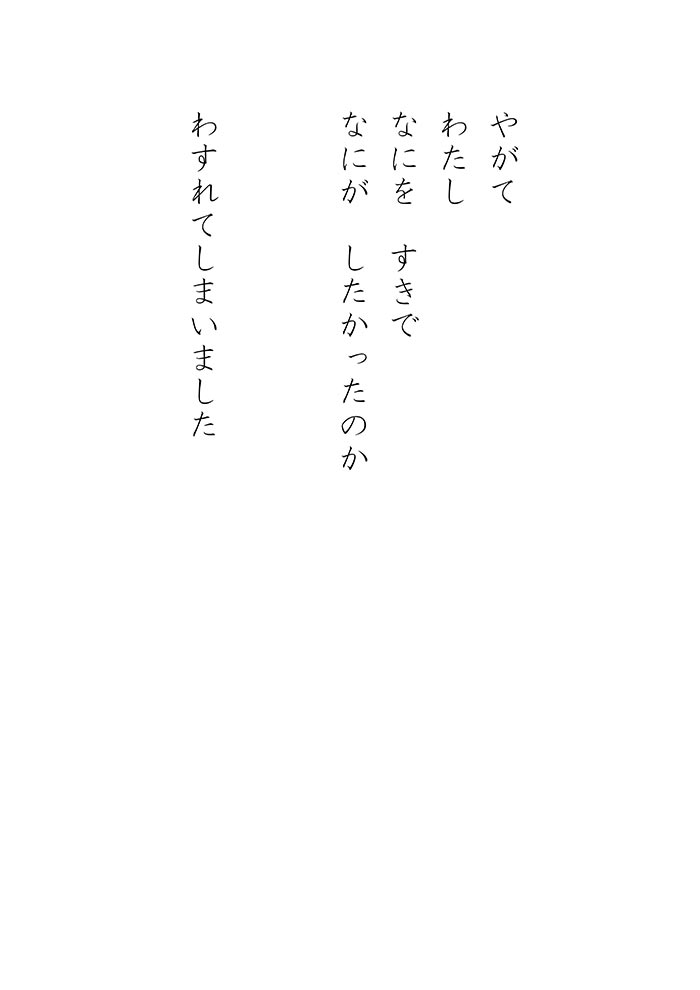 やがて
わたし
なにを　すきで
なにが　したかったのか
わすれてしまいました